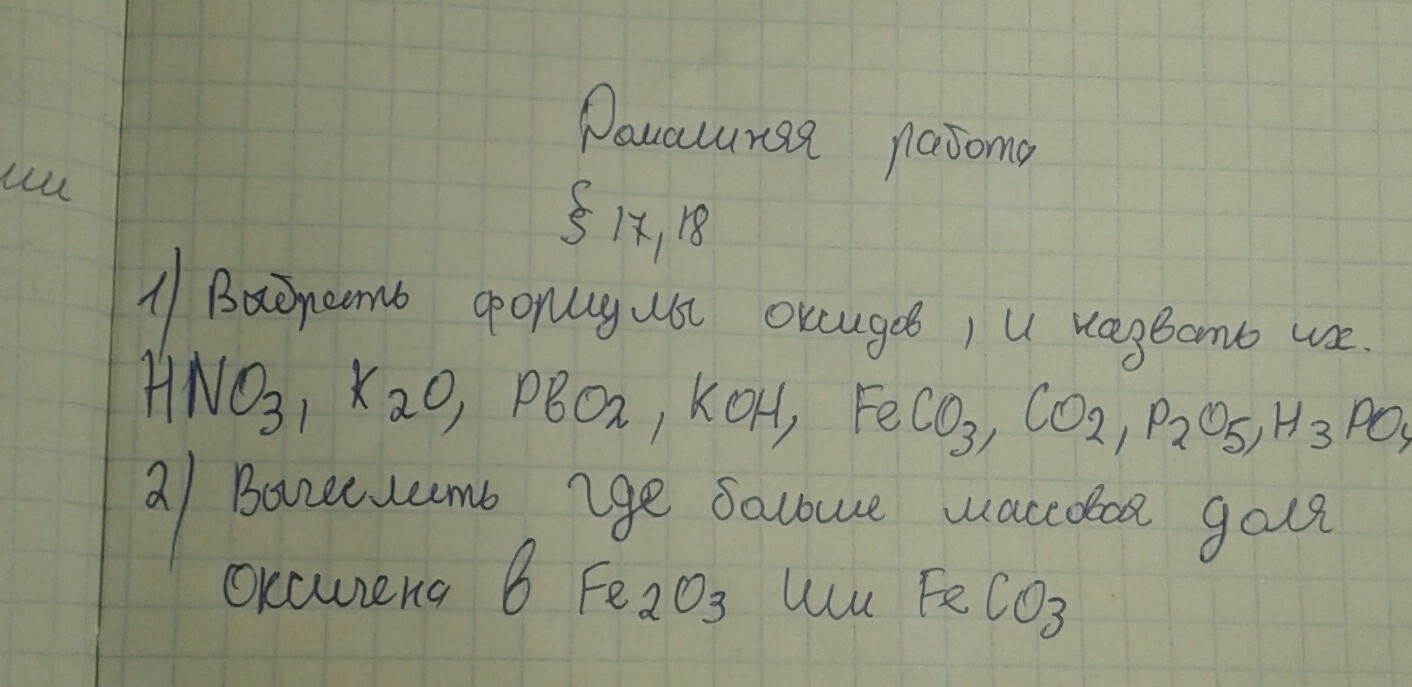 ии
Домашняя работа
§ 17, 18
1) Выбрать формулы оксидов, и назвать их.
HNO3, K2O, PBO2, KOH, FeCO3, CO2, P2O5, H3PO4
2) Вычеслить где больше массовая доля
оксигена в Fe2O3 или FeCO3